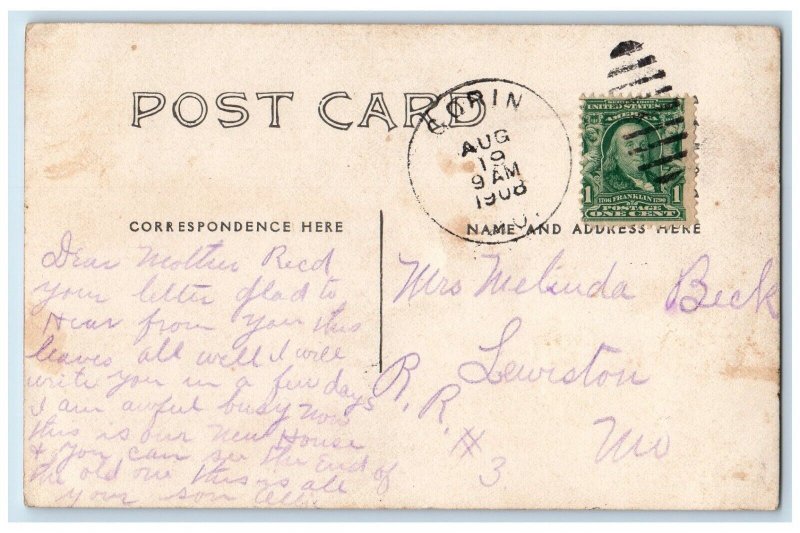 POST CARD
GORIN
AUG
19
9 AM
1908
MO.
SERIES 1902
UNITED STATES OF
AMERICA
1 1706 FRANKLIN 1790 1
POSTAGE
ONE CENT
CORRESPONDENCE HERE
NAME AND ADDRESS HERE
Dear Mother Recd
your letter glad to
Hear from you this
leaves all well I will
write you in a few days
I am awful busy now
this is our New House
& you can see the End of
the old one this is all
your son
Mrs Melinda Beck
Lewiston
R. R. # 3.
Mo